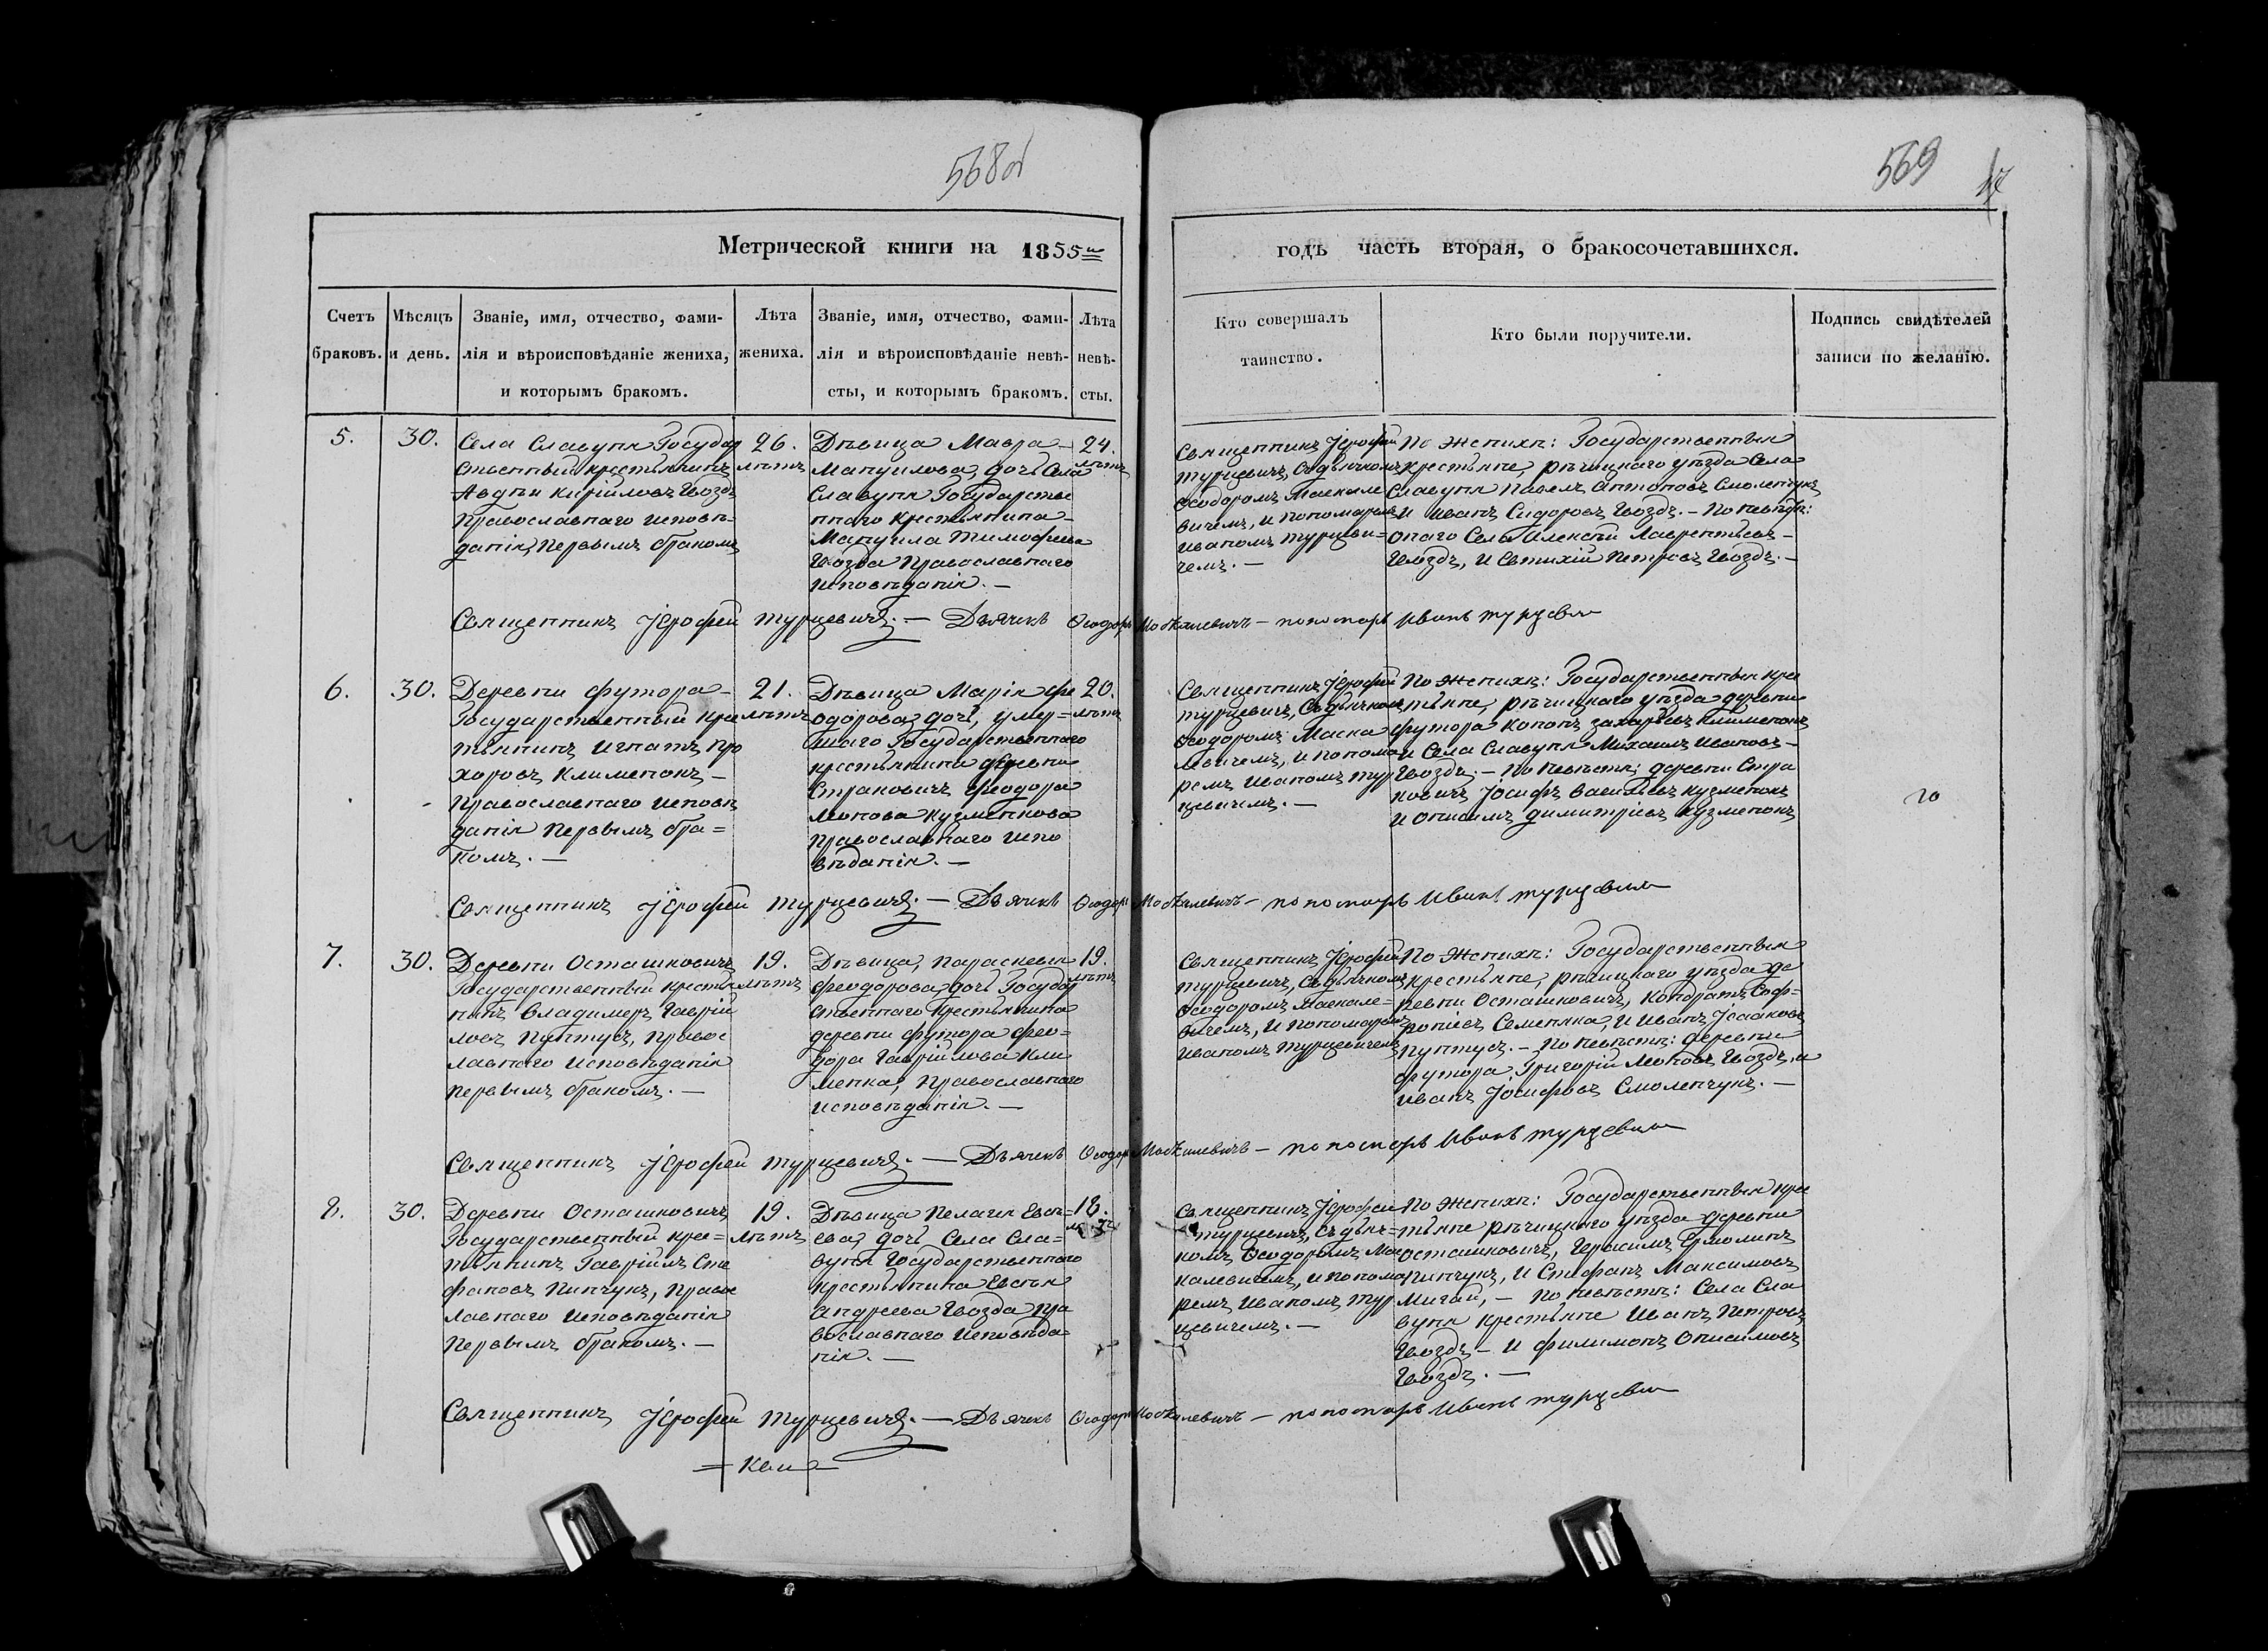 568об
569
Метрической книги на 1855й
годъ часть вторая, о бракосочетавшихся.
Счетъ браковъ.
Мѣсяцъ и день.
Званіе, имя, отчество, фами-
лія и вѣроисповѣданіе жениха,
и которымъ бракомъ.
Лѣта
жениха.
Званіе, имя, отчество, фами-
лія и вѣроисповѣданіе невѣ-
сты, и которымъ бракомъ.
Лѣта
невѣ-
сты.
Кто совершалъ
таинство.
Кто были поручители.
Подпись свидѣтелей
записи по желанію.
5.
30.
Села Славупя Государ
ственный крестьянинъ
Авдѣи Кирійловъ Гвоздъ
Православнаго исповѣ-
данія, Первымъ бракомъ
26.
лѣтъ
Дѣвица Мавра
Мануилова, дочь Села
Славупя Государстве
ннаго крестьянина
Мануила Тимофѣева
Гвозда Православнаго
исповѣданія. —
24.
лѣтъ
Священникъ Іерофей
Турцевичъ, Съ дьячкомъ
Ѳеодоромъ Маскале
вичемъ, и пономаремъ
Иваномъ Турцеви=
чемъ. —
По Женихѣ: Государственныя
крестьяне, рѣчицкаго уѣзда Села
Славупя Павелъ Антоновъ Смоленчукъ
и Иванъ Сидоровъ Гвоздъ. — По невѣстѣ:
онаго Села Алексѣй Лаврентьевъ
Гвоздъ, и Евтихій Петровъ Гвоздъ. —
Священникъ Іерофей Турцевичъ. — Дьячекъ Ѳеодоръ Москалевичъ — пономарь Иванъ Турцевичъ
6.
30.
Деревни Футора
Государственный кре
стьянинъ Игнатъ Про
хоровъ Клименокъ
Православнаго исповѣ
данія Первымъ бра=
комъ. —
21.
лѣтъ
Дѣвица Марія Фе
одорова, дочь, умер=
шаго Государственнаго
крестьянина деревни
Страковичъ Феодора
Леонова Кузменкова
Православнаго испо
вѣданія. —
20.
лѣтъ
Священникъ Іерофей
Турцевичъ, Съ дьячкомъ
Ѳеодоромъ Маска
левичемъ, и понома
ремъ Иваномъ Тур
цевичемъ. —
По Женихѣ: Государственныя кре
стьяне, рѣчицкаго уѣзда деревни
Футора Кононъ Захарьевъ Клименокъ
и Села Славупя Михаилъ Ивановъ
Гвоздъ. — По невѣстѣ: деревни Стра
ковичъ Іосифъ Васильевъ Кузменокъ
и Онисимъ Димитріевъ Кузменокъ
Священникъ Іерофей Турцевичъ. — Дьячекъ Ѳеодоръ Москалевичъ — пономарь Иванъ Турцевичъ
7.
30.
Деревни Осташковичъ
Государственный крестья
нинъ Владимеръ Гаврій
ловъ Пунтусъ, Правос
лавнаго исповѣданія
Первымъ бракомъ. —
19.
лѣтъ
Дѣвица, Параскевія
Феодорова дочь Государ
ственнаго крестьянина
деревни Футора Фео=
дора Гаврійлова Кли
менка, Православнаго
исповѣданія. —
19.
лѣтъ
Священникъ Іерофей
Турцевичъ, Съ дьячкомъ
Ѳеодоромъ Маскале=
вичемъ, и пономаремъ
Иваномъ Турцевичемъ
По Женихѣ: Государственныя
крестьяне, рѣчицкаго уѣзда де
ревни Осташковичъ, Кондратъ Соф=
роніевъ Семеняка, и Иванъ Ісааковъ
Пунтусъ. — По невѣстѣ: деревни
Футора Григорій Леоновъ Гвоздъ, и
Иванъ Іосифовъ Смоленчукъ. —
Священникъ Іерофей Турцевичъ. — Дьячекъ Ѳеодоръ Москалевичъ — пономарь Иванъ Турцевичъ
8.
30.
Деревни Осташковичъ
Государственный кре=
стьянинъ Гаврійлъ Сте
фановъ Пинчукъ, Правос
лавнаго исповѣданія
Первымъ бракомъ. —
19.
лѣтъ
Дѣвица Пелагія Евсѣ=
ева, дочь Села Сла=
вупя Государственнаго
крестьянина Евсѣя
Андреева Гвозда Пра
вославнаго исповѣда
нія. —
18.
Священникъ Іерофей
Турцевичъ, съ дьяч=
комъ Ѳеодоромъ Мас
калевичемъ, и понома
ремъ Иваномъ Тур
цевичемъ. —
По Женихѣ: Государственныя кре
стьяне рѣчицкаго уѣзда деревни
Осташковичъ, Герасимъ Ермолинъ
Пинчукъ, и Стефанъ Максимовъ
Мигай, — По невѣстѣ: Села Сла
вупя крестьяне Иванъ Петровъ
Гвоздъ — и Филимонъ Онисимовъ
Гвоздъ. —
Священникъ Іерофей Турцевичъ. — Дьячекъ Ѳеодоръ Москалевичъ — пономарь Иванъ Турцевичъ